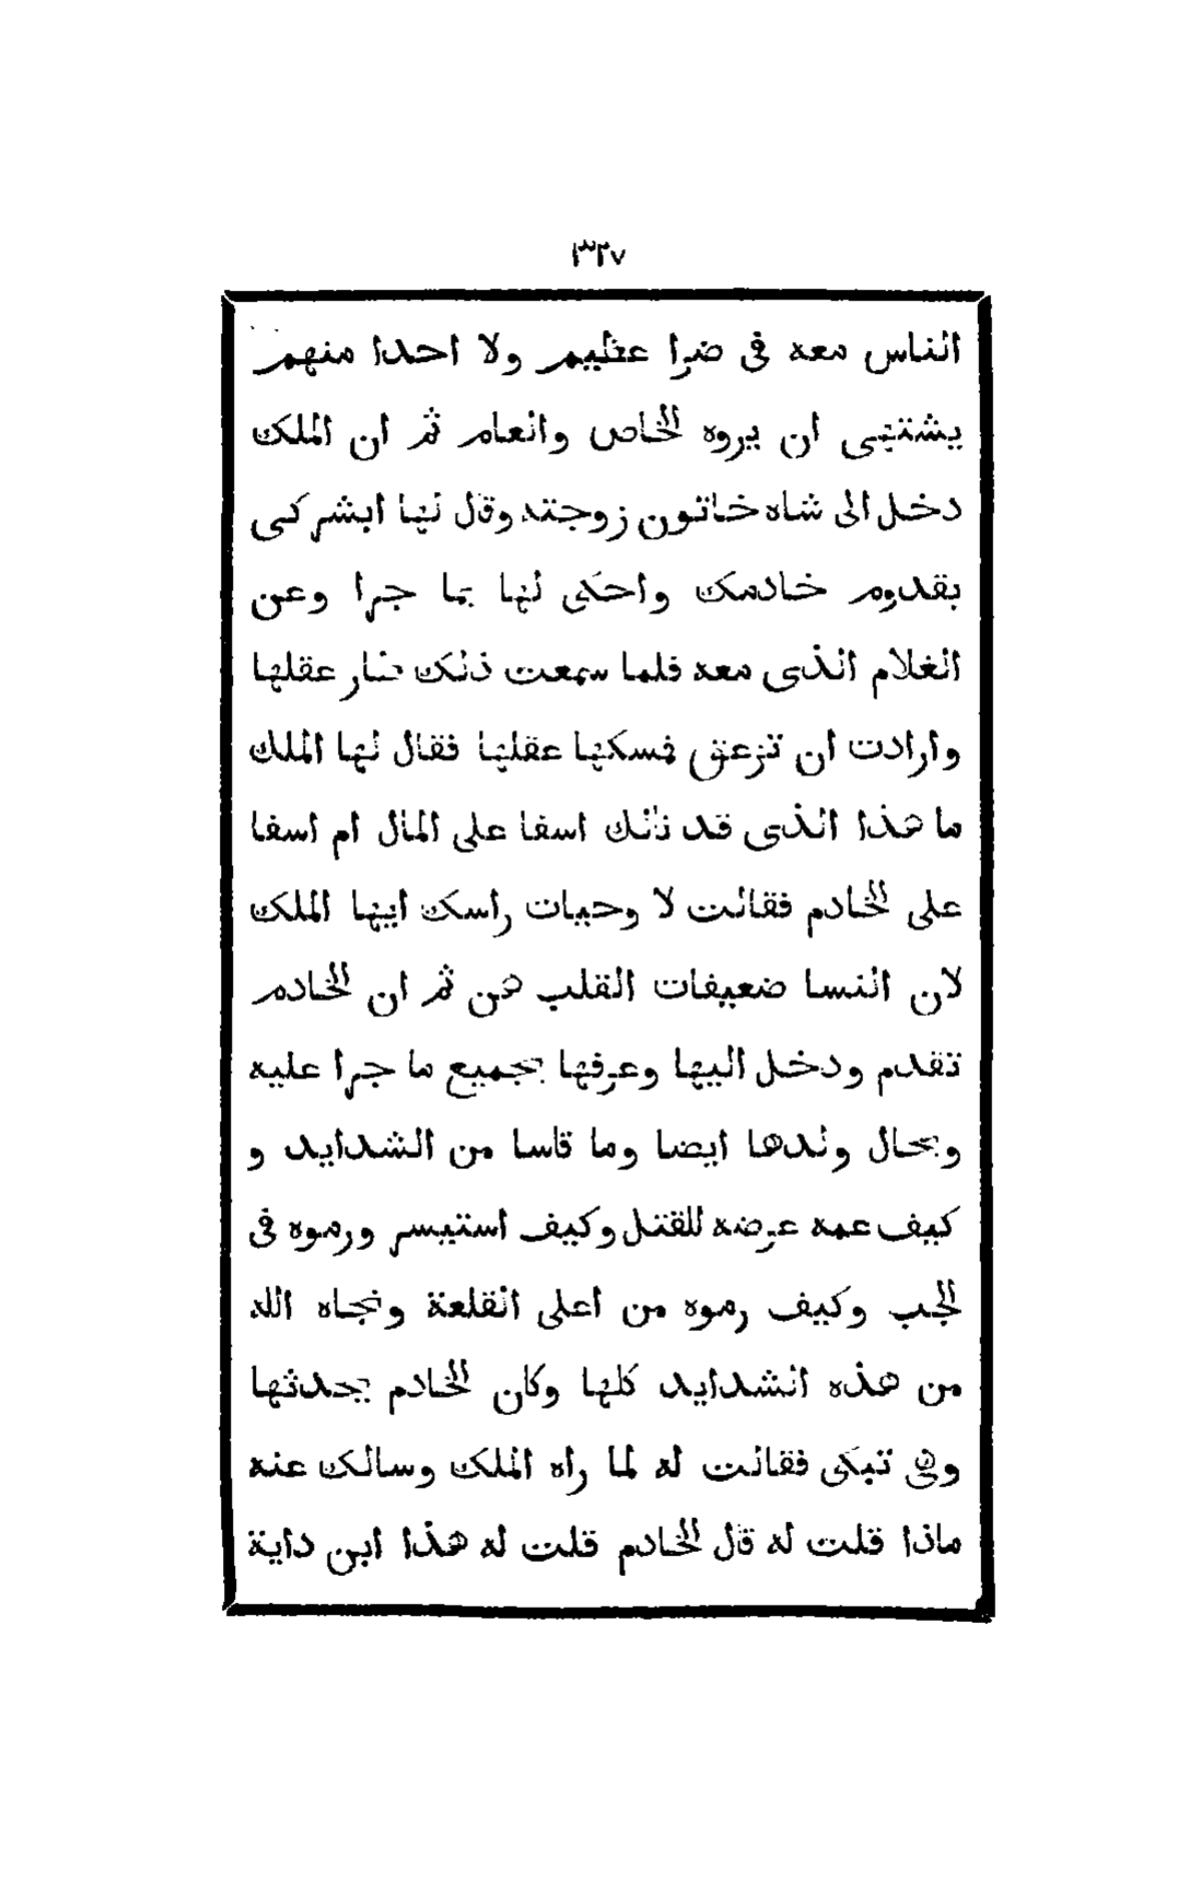 ٣٢٧
الناس معه فى ضرا عظيم ولا احدا منهم
يشتهى ان يروه الخاص وانعام ثم ان الملك
دخل الى شاه خاتون زوجته وقال لها ابشركى
بقدوم خادمك واحكى لها بما جرا وعن
الغلام الذى معه فلما سمعت ذلك طار عقلها
وارادت ان تزعق فسكها عقلها فقال لها الملك
ما هذا الذى قد نالك اسفا على المال ام اسفا
على الخادم فقالت لا وحيات راسك ايها الملك
لان النسا ضعيفات القلب هن ثم ان الخادم
تقدم ودخل اليها وعرفها بجميع ما جرا عليه
وبحال ولدها ايضا وما قاسا من الشدايد و
كيف عمه عرضه للقتل وكيف استيسر ورموه فى
الجب وكيف رموه من اعلى القلعة ونجاه الله
من هذه الشدايد كلها وكان الخادم يحدثها
وهى تبكى فقالت له لما راه الملك وسالك عنه
ماذا قلت له قال الخادم قلت له هذا ابن داية